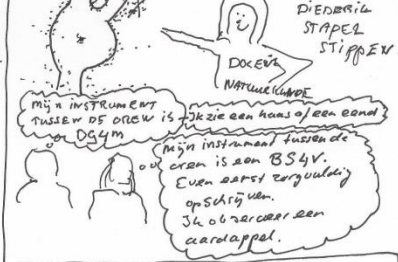 DIEDERIK
STAPEL
STIPPEN
DOCENT
NATUURKUNDE
Mijn INSTRUMENT
TUSSEN DE OREN is
DG4M
Ik zie een haas of een eend
Mijn instrument tussen de
oren is een BS4V.
Even eerst zorgvuldig
opschrijven.
Ik observeer een
aardappel.